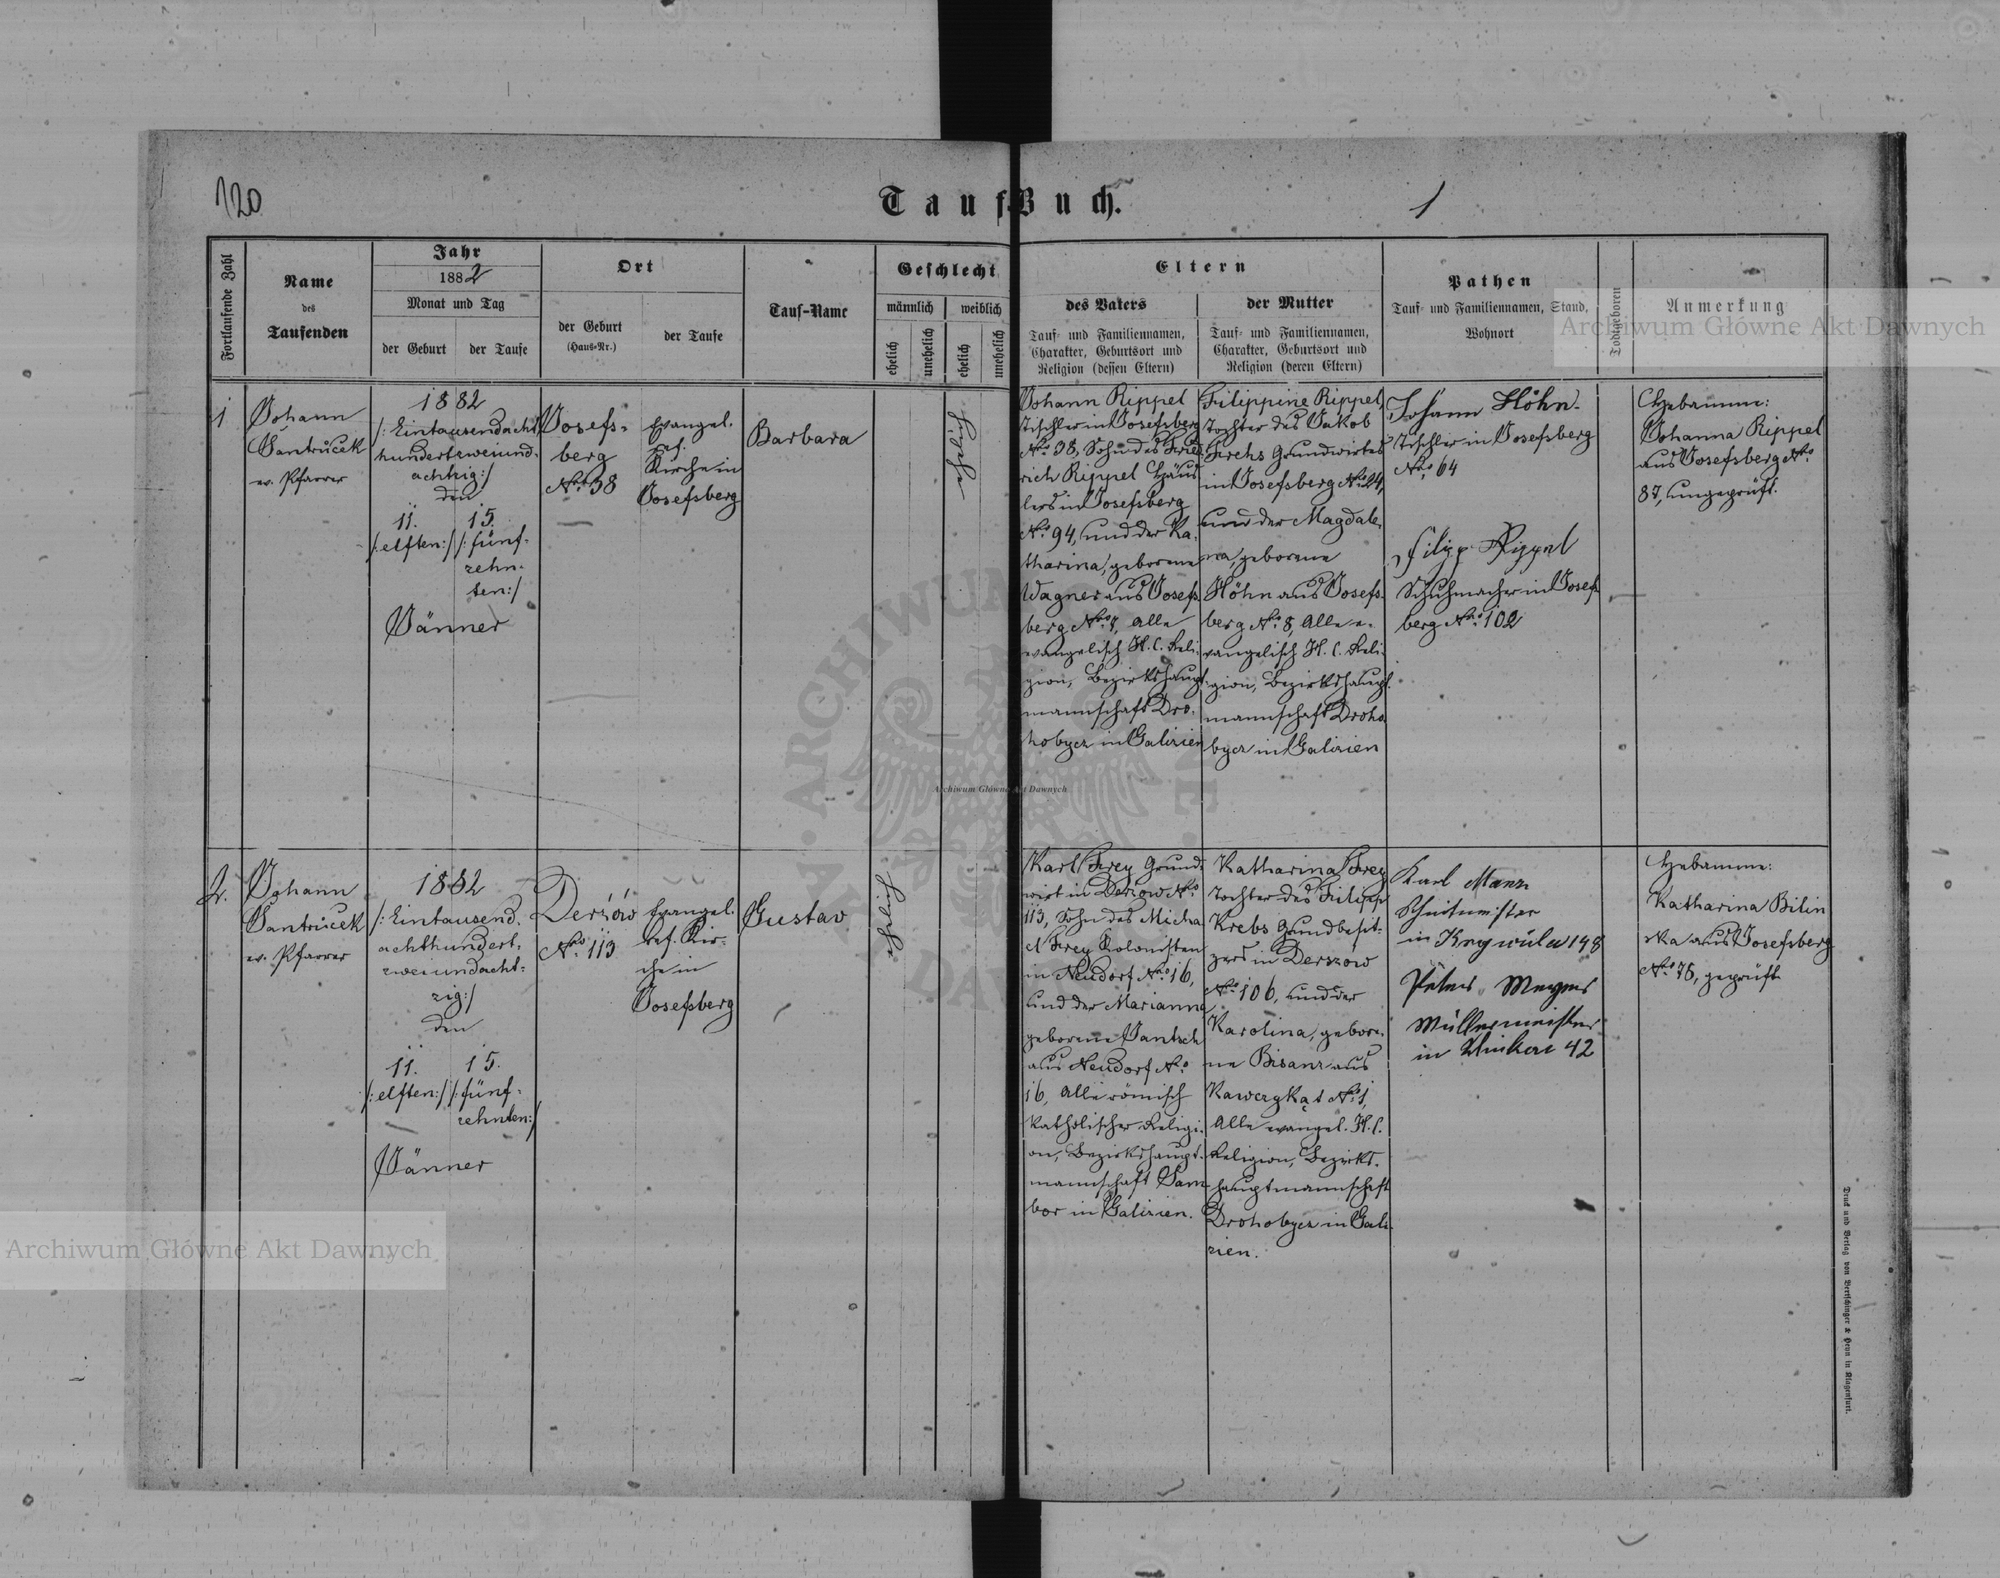 120
Tauf-Buch.
1
Fortlaufende Zahl
Name
des
Taufenden
Jahr
1882
Monat und Tag
der Geburt
der Taufe
Ort
der Geburt
(Haus-Nr.)
der Taufe
Tauf-Name
Geschlecht
männlich
weiblich
ehelich
unehelich
ehelich
unehelich
Eltern
des Vaters
Tauf- und Familiennamen,
Charakter, Geburtsort und
Religion (dessen Eltern)
der Mutter
Tauf- und Familiennamen,
Charakter, Geburtsort und
Religion (deren Eltern)
Pathen
Tauf- und Familiennamen, Stand,
Wohnort
Todtgeboren
Anmerkung
Archiwum Główne Akt Dawnych
1
Johann
Jantrucek
ev. Pfarrer
1882
/: Eintausendacht
hundertzweiund-
achtzig :/
den
11.
/: elften :/
15.
/: fünf-
zehn-
ten :/
Jänner
Josefs-
berg
No. 38
Evangel.
ref.
Kirche in
Josefsberg
Barbara
ehelich
Johann Rippel
Tischler in Josefsberg
No. 38, Sohn des Fried-
rich Rippel Häus-
lers in Josefsberg
No. 94, und der Ka-
tharina, geborene
Wagner aus Josefs-
berg No. 7, Alle
evangelisch H. C. Reli-
gion, Bezirkshaupt-
mannschaft Dro-
hobycz in Galizien
Filippine Rippel,
Tochter des Jakob
Grundwirtes
in Josefsberg No. 24,
und der Magdale-
na, geborene
Höhn aus Josefs-
berg No. 8, Alle e-
vangelisch H. C. Reli-
gion, Bezirkshaupt-
mannschaft Droho-
bycz in Galizien
Johann Höhn-
Tischler in Josefsberg
No. 64
Filipp Rippel
Schuhmacher in Josefs-
berg No. 102
Hebamme:
Johanna Rippel
aus Josefsberg No.
87, ungeprüft.
2.
Johann
Jantrucek
ev. Pfarrer
1882
/: Eintausend-
achthundert-
zweiundacht-
zig :/
den
11.
/: elften :/
15.
/: fünf-
zehnten :/
Jänner
Derżów
No. 113
Evangel.
ref. Kir-
che in
Josefsberg
Gustav
ehelich
Karl Frey Grund-
wirt in Derzow No.
113, Sohn des Micha-
el Frey Kolonisten
in Neudorf No. 16,
und der Marianna
geborene Jantsch
aus Neudorf No.
16, Alle römisch
katholischer Religi-
on, Bezirkshaupt-
mannschaft Sam-
bor in Galizien.
Katharina Frey
Tochter des Filipp
Krebs Grundbesit-
zers in Derszow
No. 106, und der
Karolina, gebore-
ne Bisanz aus
Kawczykąt No. 1,
Alle evangel. H. C.
Religion, Bezirks-
hauptmannschaft
Drohobycz in Gali-
zien.
Karl Manz
in 148
Peter Meyer
Müllermeister
in 42
Hebamme:
Katharina Bilin
ska aus Josefsberg
No. 75, geprüft
Archiwum Główne Akt Dawnych
Archiwum Główne Akt Dawnych
Druck und Verlag von Bertschinger & Heyn in Klagenfurt.